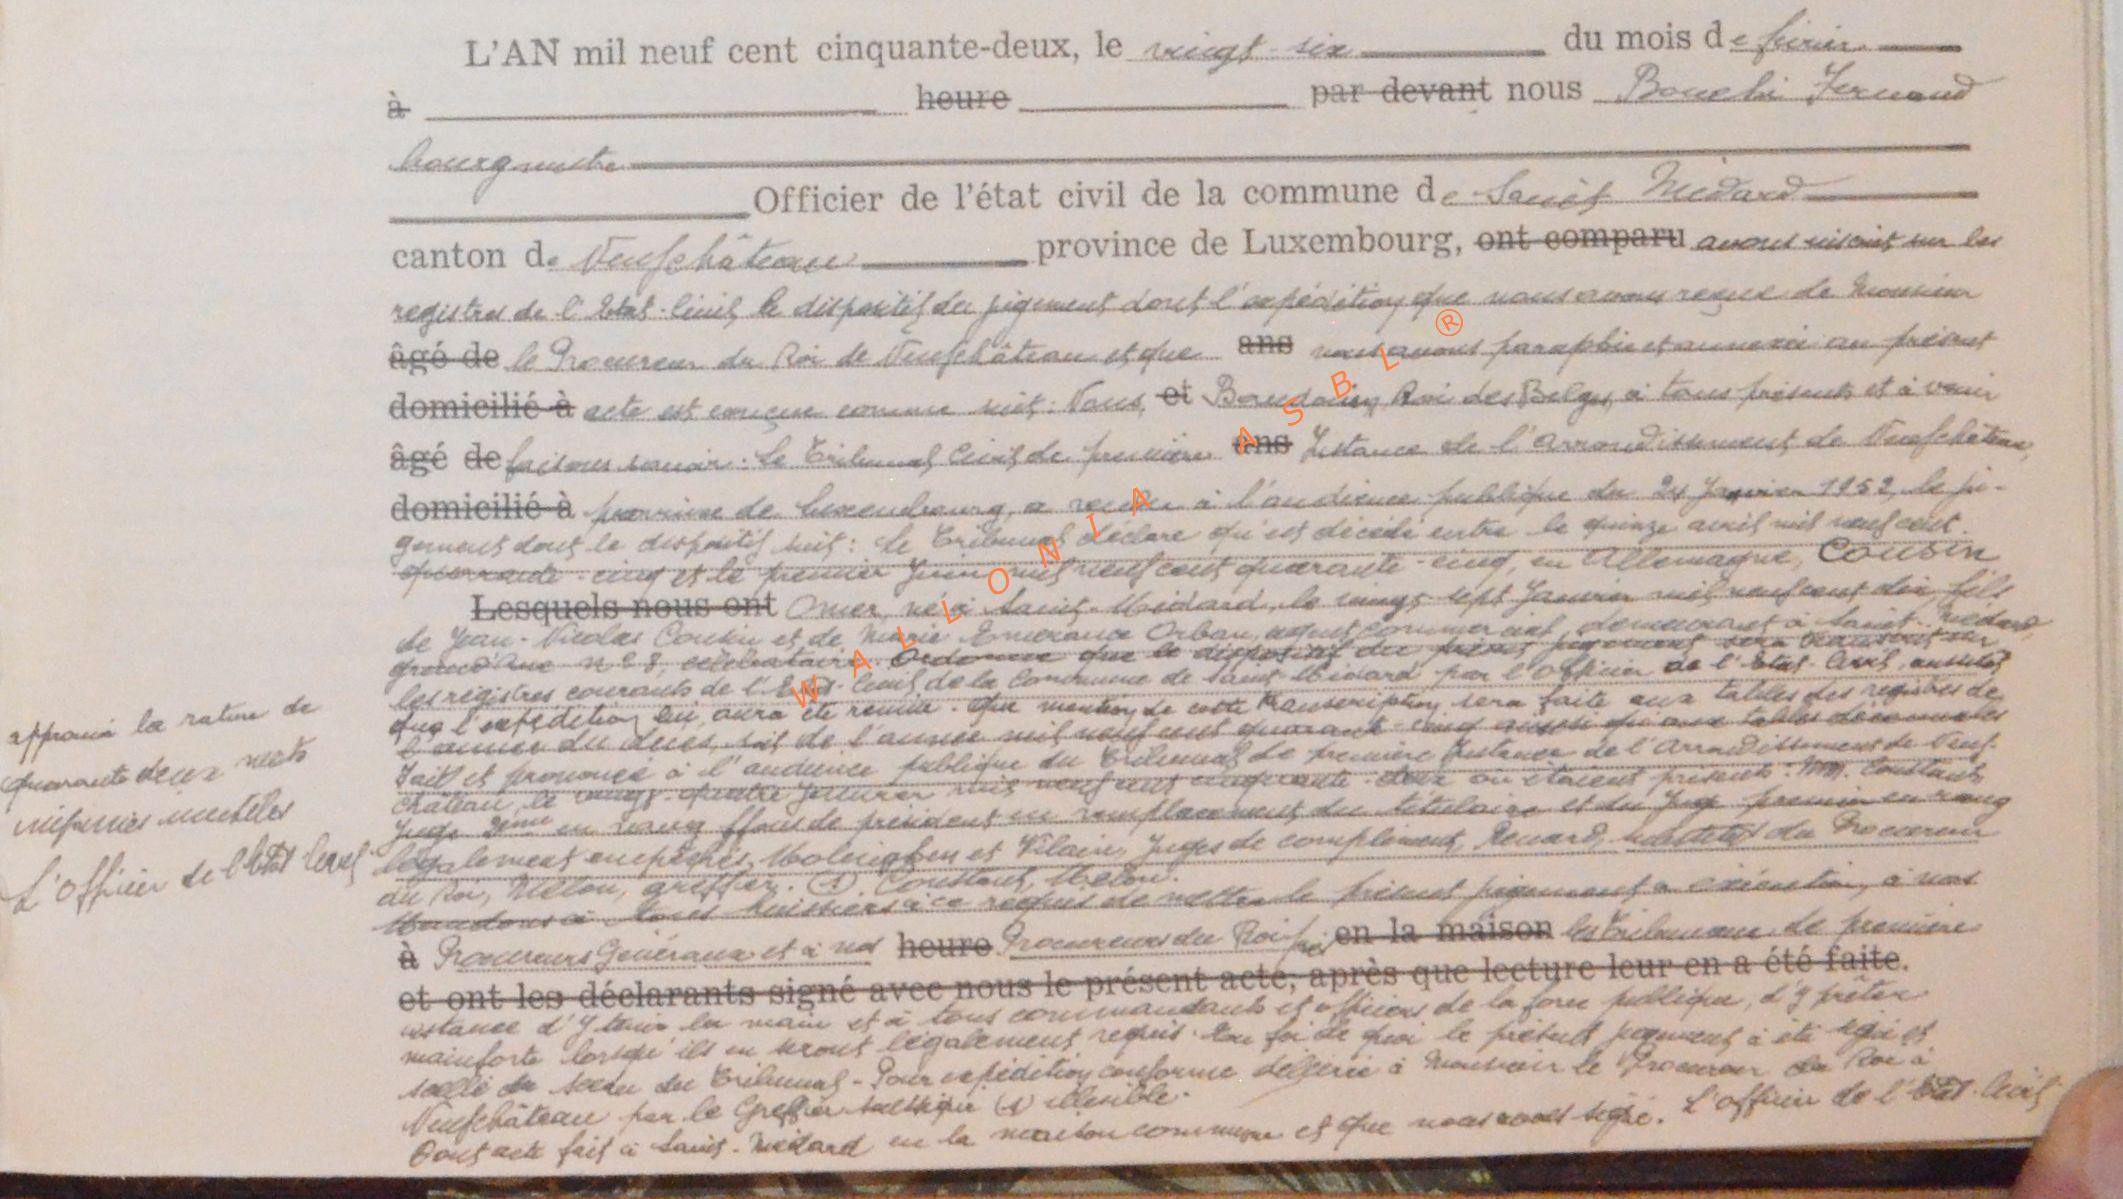 L'AN mil neuf cent cinquante-deux, le vingt-six du mois de février
à heure par devant nous Bouché Fernand
bourgmestre
Officier de l'état civil de la commune de Saint Médard
canton de Neufchâteau province de Luxembourg, ont comparu avons inscrit sur les
registres de l'Etat-Civil, le dispositif du jugement dont l'expédition que nous avons reçue de Monsieur
âgé de le Procureur du Roi de Neufchâteau et que ans nous avons paraphée et annexée au présent
domicilié à acte est conçue comme suit. Nous, et Baudouin, Roi des Belges, à tous présents et à venir
âgé de faisons savoir. Le Tribunal Civil de première ans Instance de l'Arrondissement de Neufchâteau,
domicilié à province de Luxembourg, a rendu à l'audience publique du 24 Janvier 1952, le ju-
gement dont le dispositif suit: Le Tribunal déclare qu'est décédé entre le quinze avril mil neuf cent
quarante-cinq et le premier Juin mil neuf cent quarante-cinq, en Allemagne, Cousin
Lesquels nous ont Omer, né à Saint-Médard, le vingt sept Janvier mil neuf cent dix, fils
de Jean-Nicolas Cousin et de Marie Emerance Orban, agent commercial, demeurant à Saint-Médard,
grand'rue n° 28, célibataire. Ordonne que le dispositif du présent jugement sera transcrit sur
les registres courants de l'Etat-Civil de la Commune de Saint Médard par l'Officier de l'Etat-Civil, aussitôt
que l'expédition lui aura été remise. Que mention de cette transcription sera faite aux tables des registres de
l'année du décès, soit de l'année mil neuf cent quarante-cinq ainsi qu'aux tables décennales
Fait et prononcé à l'audience publique du Tribunal de première Instance de l'Arrondissement de Neuf-
château, le vingt-quatre Janvier mil neuf cent cinquante-deux où étaient présents: MM. Constant,
Juge en rang ffons de président en remplacement du titulaire et du Juge premier en rang
légalement empêchés, et Vilain, Juges de complément, Renard, substitut du Procureur
du Roi, Melon, greffier. (s). Constant, Melon.
Mandons à tous huissiers à ce requis de mettre le présent jugement à exécution, à nos
à Procureurs Généraux et à nos heure Procureurs du Roi près en la maison les Tribunaux de première
et ont les déclarants signé avec nous le présent acte, après que lecture leur en a été faite.
instance d'y tenir la main et à tous commandants et officiers de la force publique, d'y prêter
mainforte lorsqu'ils en seront légalement requis. En foi de quoi le présent jugement a été signé et
scellé du sceau du Tribunal - Pour expédition conforme délivrée à Monsieur le Procureur du Roi à
Neufchâteau par le Greffier soussigné (s) illisible.
Dont acte fait à Saint-Médard en la maison communale et que nous avons signé. L'officier de l'Etat-Civil
approuvé la rature de
quarante deux mots
imprimés inutiles
L'Officier de l'Etat Civil
WALLONIA ASBL ®